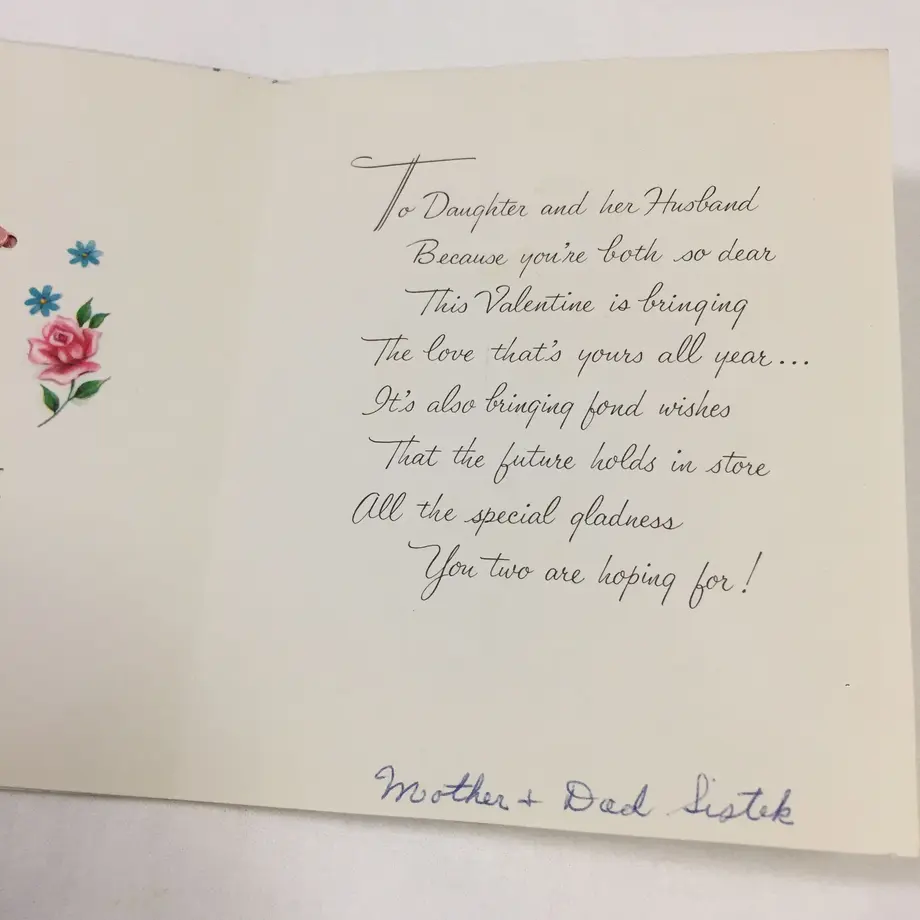 To Daughter and her Husband
Because you're both so dear
This Valentine is bringing
The love that's yours all year...
It's also bringing fond wishes
That the future holds in store
All the special gladness
You two are hoping for!
Mother + Dad Sistek